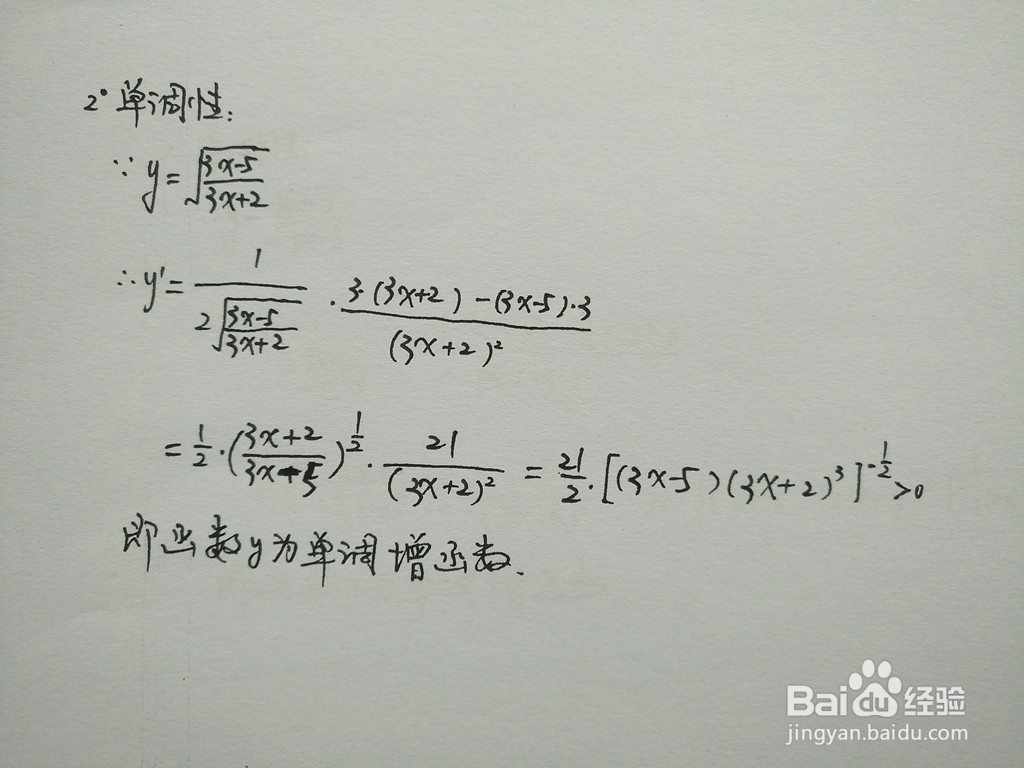 2° 单调性:
∵ y = √((3x-5)/(3x+2))
∴ y' = 1/(2√((3x-5)/(3x+2))) · (3·(3x+2)-(3x-5)·3)/(3x+2)²
= 1/2·((3x+2)/(3x-5))^(1/2) · 21/(3x+2)² = 21/2·[(3x-5)(3x+2)³]^(-1/2) >0
即函数y为单调增函数.
Baidu经验
jingyan.baidu.com